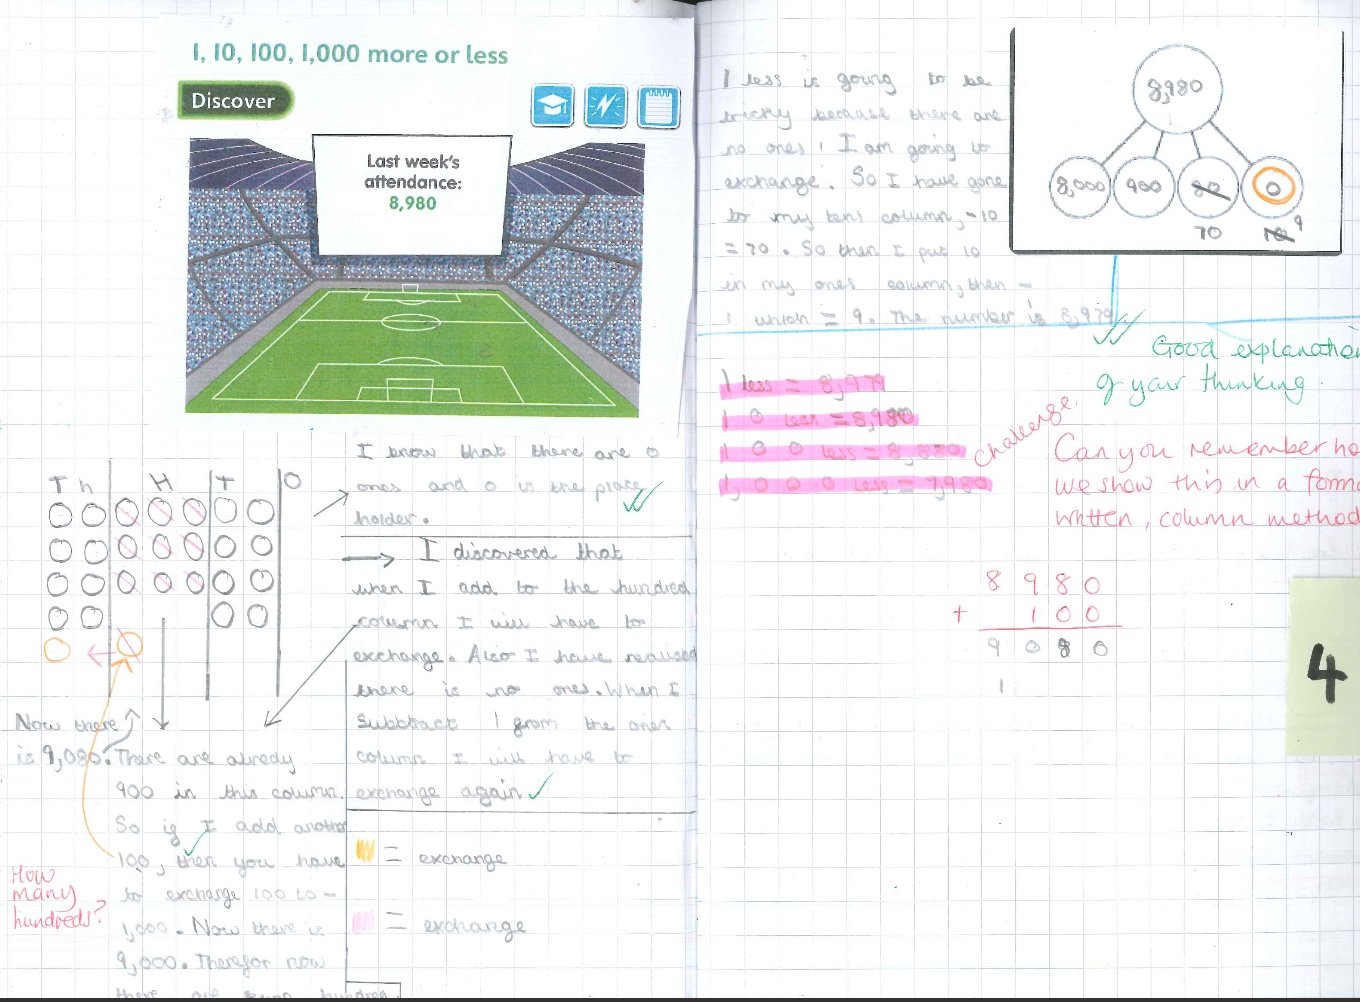 1, 10, 100, 1,000 more or less
Discover
Last week's
attendance:
8,980
Th H T O
Now there
is 9,080.
There are alredy
900 in this column.
So if I add another
100, then you have
to exchange 100 to -
1,000. Now there is
9,000. Therefor now
there are hundred
How
many
hundreds?
I know that there are 0
ones and 0 is the place
holder.
I discovered that
when I add to the hundred
column I will have to
exchange. Also I have realised
there is no ones. When I
subbtract 1 from the ones
column I will have to
exchange again
= exchange
= exchange
1 less is going to be
tricky because there are
no ones! I am going to
exchange. So I have gone
to my tens column, -10
= 70. So then I put 10
in my ones column, then -
1 which = 9. The number is 8,979
8,980
8,000 900 80 0
70 10 9
Good explanation
of your thinking.
1 less = 8,979
10 less = 8,980
100 less = 8,880
1,000 less = 7,980
Challenge.
Can you remember ho
we show this in a forma
written, column method
8 9 8 0
+ 1 0 0
9 0 8 0
1
4